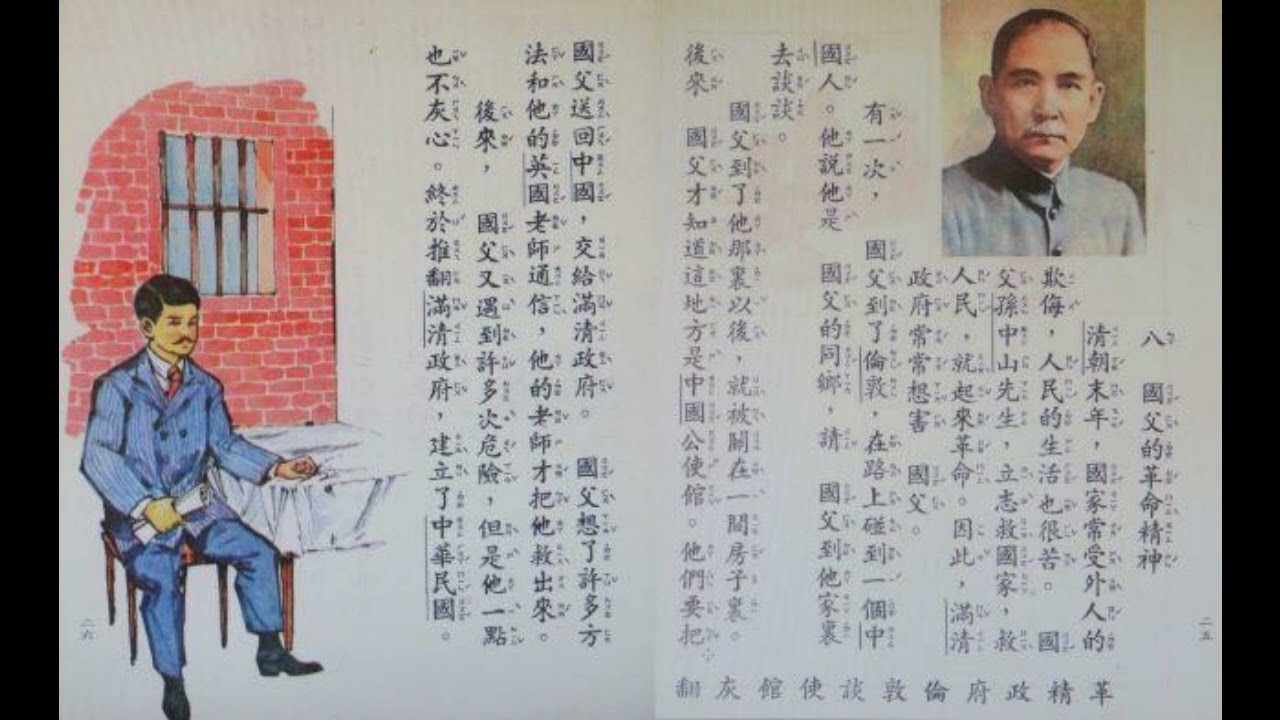 八　國父的革命精神
清朝末年，國家常受外人的
欺侮，人民的生活也很苦。　國
父孫中山先生，立志救國家，救
人民，就起來革命。因此，滿清
政府常常想害　國父。
有一次，　國父到了倫敦，在路上碰到一個中
國人。他說他是　國父的同鄉，請　國父到他家裏
去談談。
國父到了他那裏以後，就被關在一間房子裏。
後來　國父才知道這地方是中國公使館。他們要把
國父送回中國，交給滿清政府。　國父想了許多方
法和他的英國老師通信，他的老師才把他救出來。
後來，　國父又遇到許多次危險，但是他一點
也不灰心。終於推翻滿清政府，建立了中華民國。
革精政府倫敦談使館灰翻
二五
二六